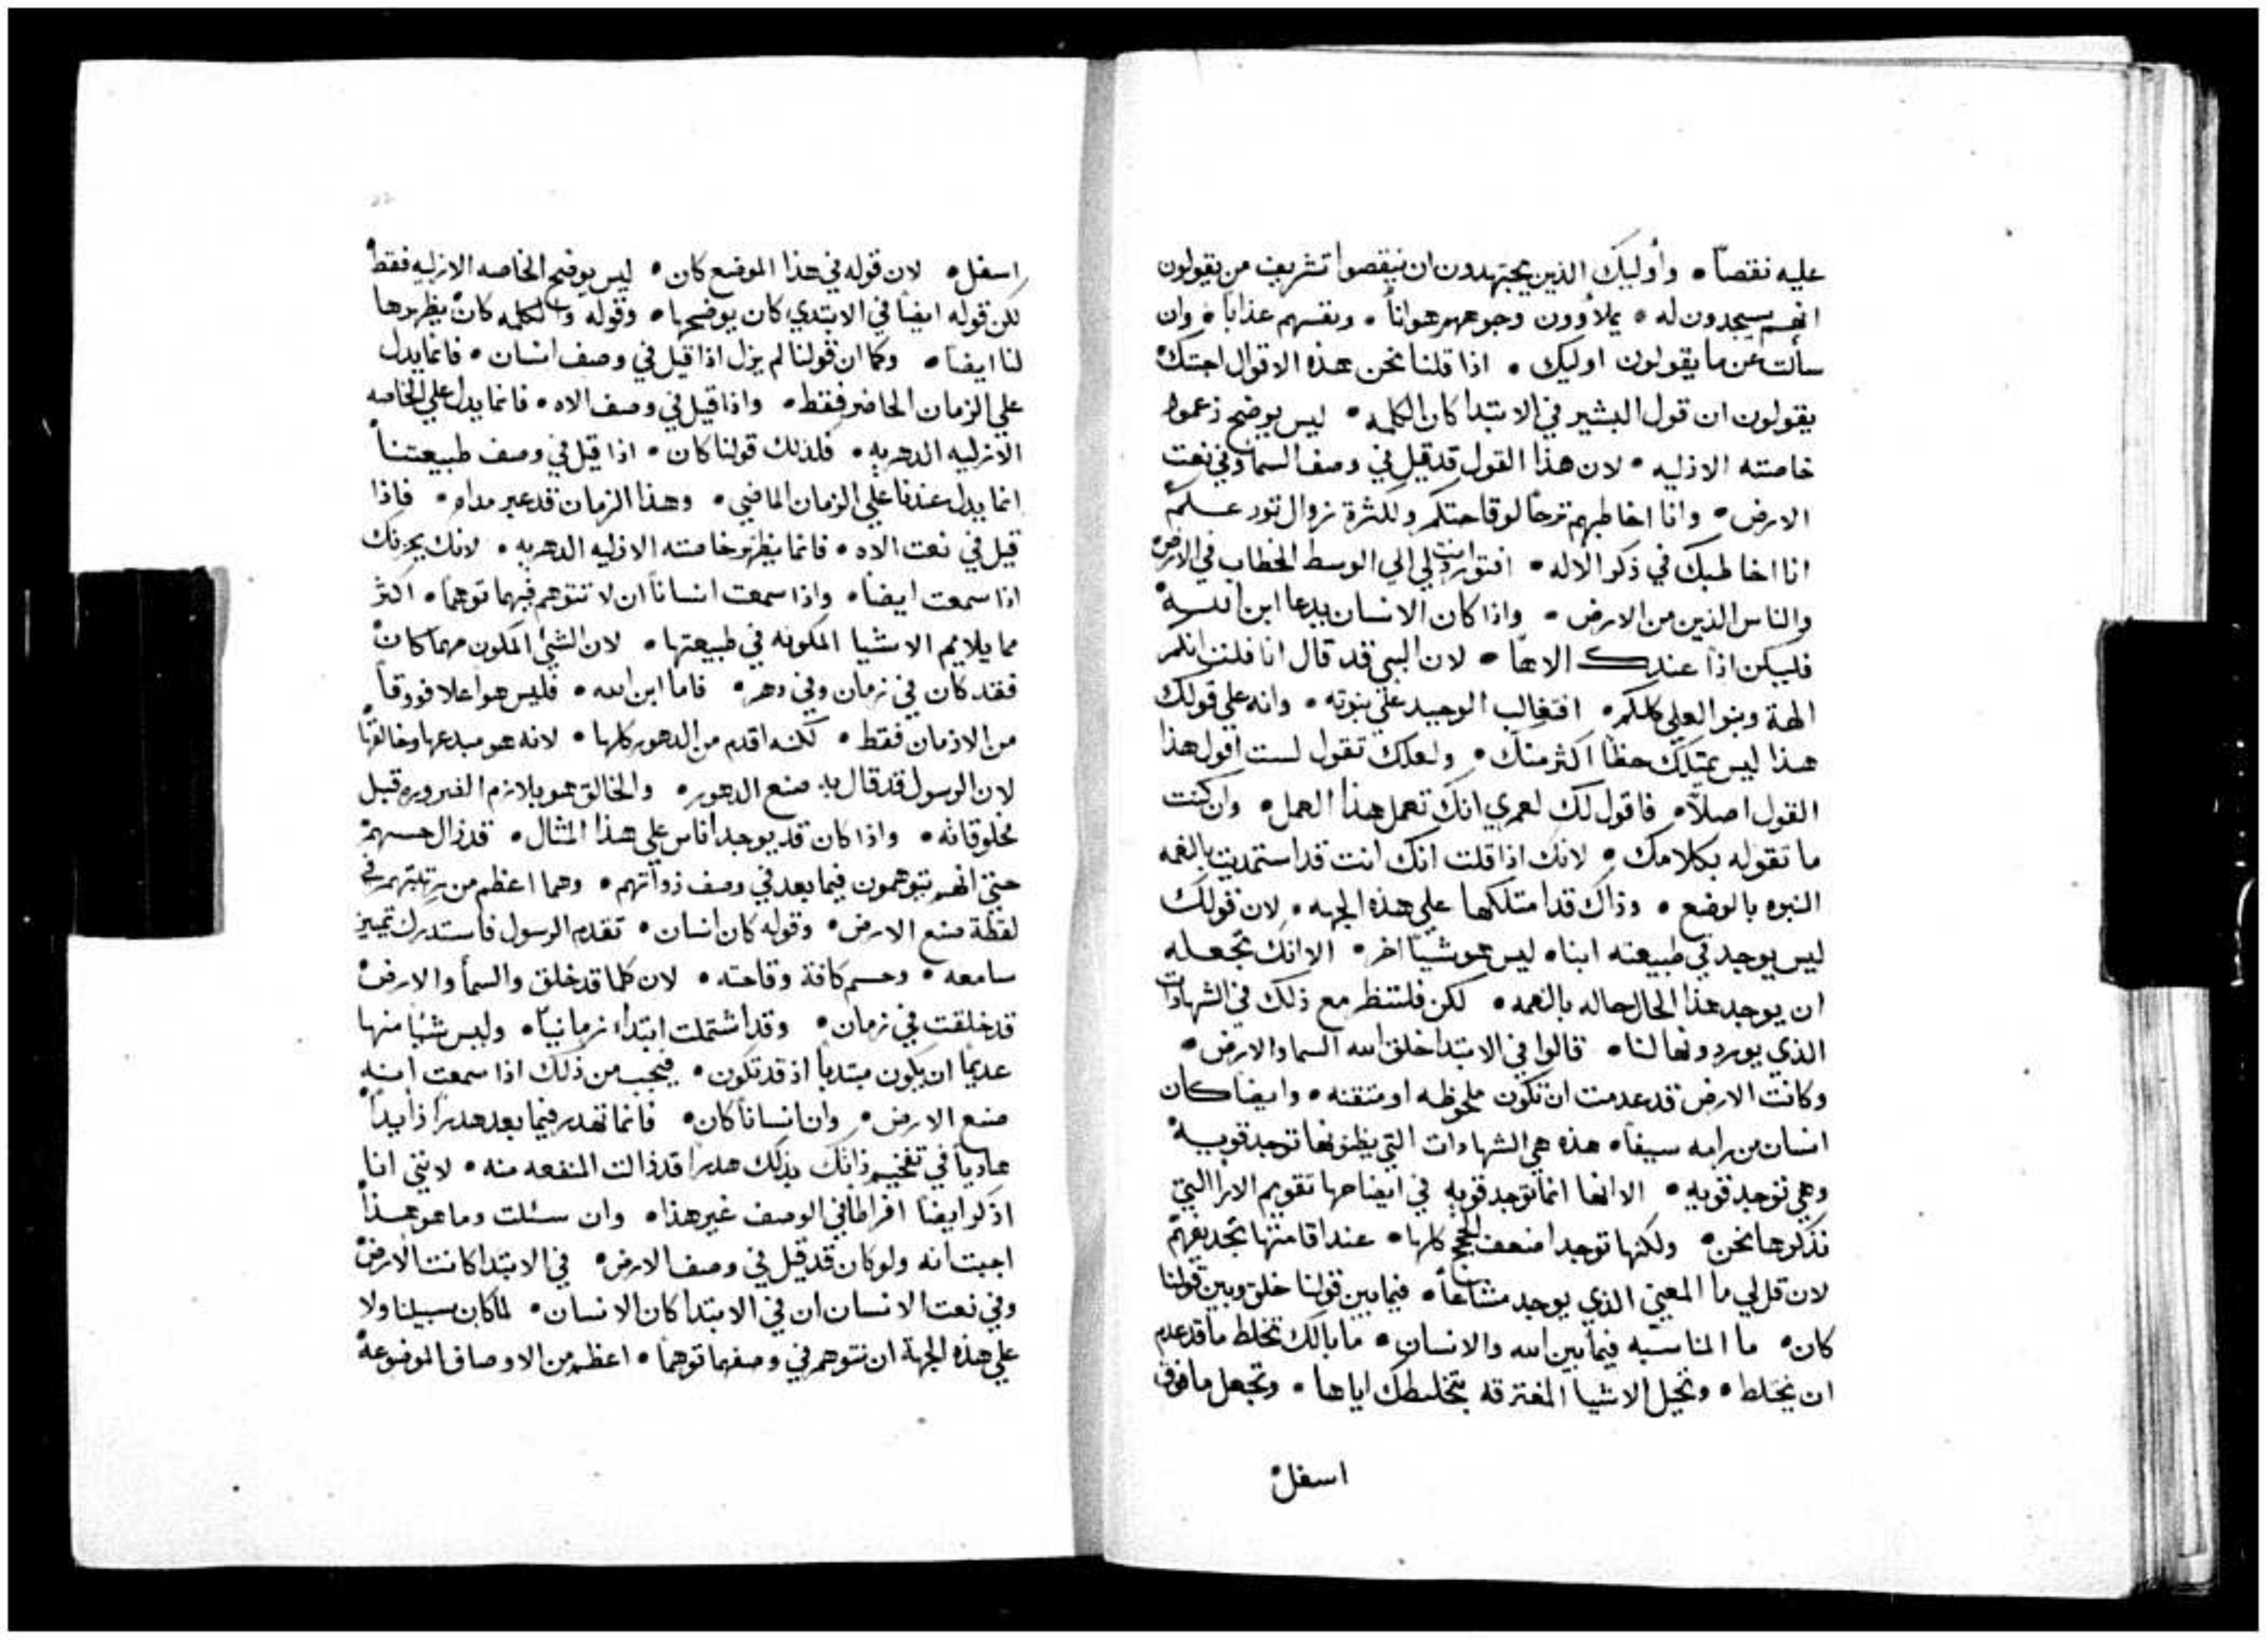 عليه نقصاً • وأوليك الذين يجتهدون ان ينقصوا تشريف من يقولون
انهم يسجدون له • يملأوون وجوههم هواناً • ونفسهم عذاباً • وان
سألت عن ما يقولون اوليك • اذا قلنا نحن هذه الاقوال اجتك
يقولون ان قول البشير في الابتدا كان الكلمه • ليس يوضح زعموا
خاصته الازليه • لان هذا القول قد قيل في وصف السما وفي نعت
الارض • وانا اخاطبهم ترحاً لوقاحتكم ولكثرة زوال تورعكم
انا اخاطبك في ذكر الاله • افتورد انت لي الي الوسط الخطاب في الارض
والناس الذين من الارض • واذا كان الانسان يدعا ابن الله
فليكن اذاً عندك الاهاً • لان النبي قد قال انا قلت انكم
الهة وبنو العلي كلكم • افتغالب الوحيد علي بنوته • وانه علي قولك
هذا ليس يمتلك حظاً اكثر منك • ولعلك تقول لست اقول هذا
القول اصلاً • فاقول لك لعمري انك تعمل هذا العمل • وان كنت
ما تقوله بكلامك • لانك اذا قلت انك انت قد استمديت بالنعمه
البنوه بالوضع • وذاك قد امتلكها علي هذه الجهه • لان قولك
ليس يوجد في طبيعته ابناه ليس هو شياً اخر • الا انك تجعله
ان يوجد هذا الحال حاله بالنعمه • لكن فلننظر مع ذلك في الشهادات
الذي يوردونها لنا • قالوا في الابتدا خلق الله السما والارض •
وكانت الارض قد عدمت ان تكون ملحوظه او متقنه • وايضاً كان
انسان من رامه سيفاً • هذه هي الشهادات التي يظنونها توجد قويه
وهي توجد قويه • الا انها انما توجد قويه في ايضاحها تقويم الارا التي
نذكرها نحن • ولكنها توجد اضعف الحجج كلها • عند اقامتها تجديفهم
لان قل لي ما المعني الذي يوجد مشاعاً • فيما بين قولنا خلق وبين قولنا
كان • ما المناسبه فيما بين الله والانسان • ما بالك تخلط ما قد عدم
ان يختلط • وتحيل الاشيا المفترقه بتخليطك اياها • وتجعل ما فوق
اسفل
اسفل • لان قوله في هذا الموضع كان • ليس يوضح الخاصه الازليه فقط
لكن قوله ايضاً في الابتدي كان يوضحها • وقوله والكلمه كان يظهرها
لنا ايضاً • وكما ان قولنا لم يزل اذا قيل في وصف انسان • فانما يدل
علي الزمان الحاضر فقط • واذا قيل في وصف الاه • فانما يدل علي الخاصه
الازليه الدهريه • فلذلك قولنا كان • اذا قيل في وصف طبيعتنا
انما يدل عندنا علي الزمان الماضي • وهذا الزمان قد عبر مداه • فاذا
قيل في نعت الاه • فانما يظهر خاصته الازليه الدهريه • لانك يجزيك
اذا سمعت ايضاً • واذا سمعت انساناً ان لا تتوهم فيهما توهماً • اكثر
مما يلايم الاشيا المكونه في طبيعتها • لان الشي المكون مهما كان
فقد كان في زمان وفي دهر • فاما ابن الله • فليس هو اعلا فوقاً
من الازمان فقط • لكنه اقدم من الدهور كلها • لانه هو مبدعها وخالقها
لان الرسول قد قال به صنع الدهور • والخالق هو بلازم الضروره قبل
مخلوقاته • واذا كان قد يوجد اناس علي هذا المثال • قد زال حسهم
حتي انهم يتوهمون فيما بعد في وصف ذواتهم • وهما اعظم من رتبتهم في
لفظة صنع الارض • وقوله كان انسان • تقدم الرسول فاستدرك تمييز
سامعه • وحسم كافة وقاحته • لان كلما قد خلق والسمأ والارض
قد خلقت في زمان • وقد اشتملت ابتداء زمانياً • وليس شياً منها
عديماً ان يكون مبتدياً اذ قد تكون • فيجب من ذلك اذا سمعت انه
صنع الارض • وان انساناً كان • فانما تهدر فيما بعد هدراً زايداً
هاوياً في تفخيم ذاتك بذلك هدراً قد زالت المنفعه منه • لانني انا
اذكر ايضاً افراطاً في الوصف غير هذا • وان سئلت وما هو هذا
اجبت انه ولو كان قد قيل في وصف الارض • في الابتدا كانت الارض
وفي نعت الانسان ان في الابتدا كان الانسان • لما كان سبيلنا ولا
علي هذه الجهة ان نتوهم في وصفهما توهماً • اعظم من الاوصاف الموضوعه